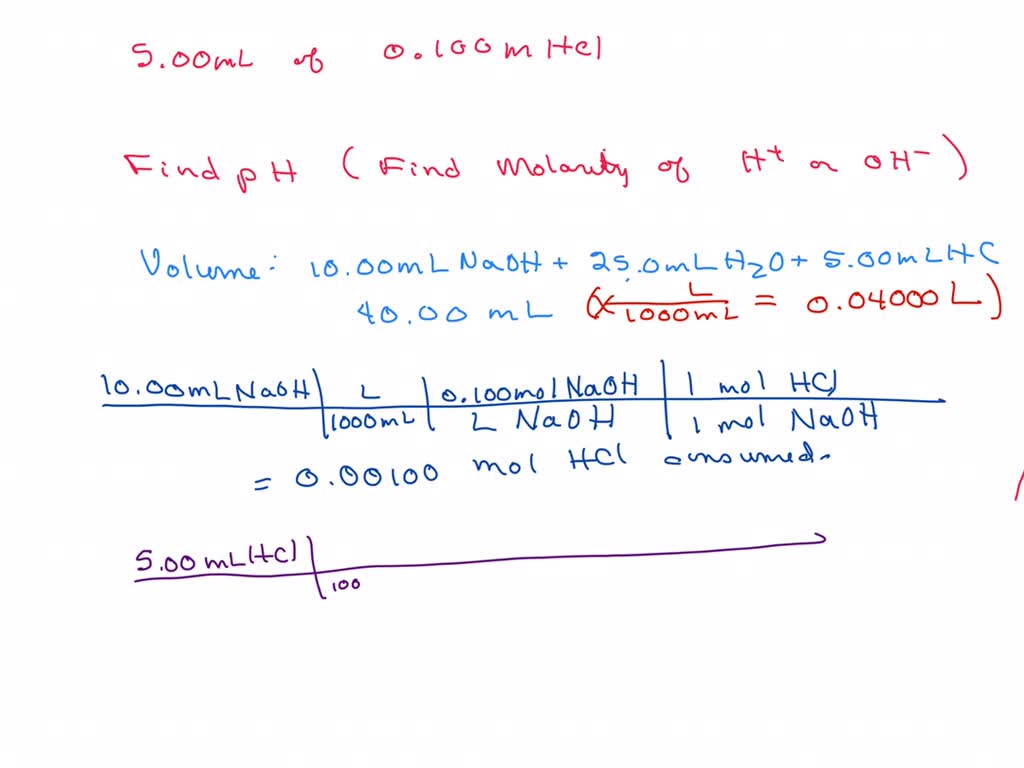 5.00mL of 0.100 m HCl
Find pH ( Find Molarity of H+ or OH- )
Volume: 10.00mL NaOH + 25.0mL H2O + 5.00mL HC
40.00 mL (x L/1000mL = 0.04000 L)
10.00mL NaOH | L | 0.100mol NaOH | 1 mol HCl
1000mL | L NaOH | 1 mol NaOH
= 0.00100 mol HCl consumed.
5.00 mL HCl |
100